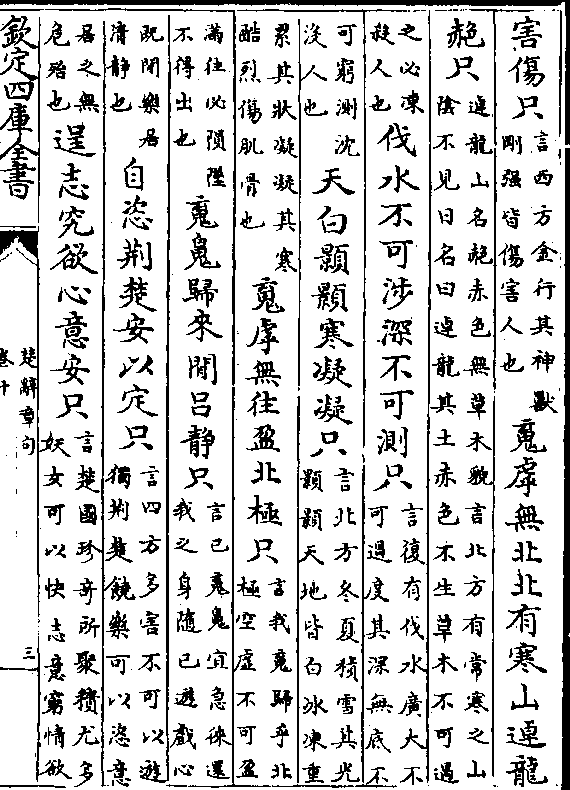 害傷只 言西方金行其神獸
剛强皆傷害人也 䰟虖無北北有寒山逴龍
赩只 逴龍山名赩赤色無草木貌言北方有常寒之山
陰不見日名曰逴龍其土赤色不生草木不可過
之必凍
殺人也 伐水不可涉深不可測只 言復有伐水廣大不
可過度其深無底不
可窮測沈
沒人也 天白顥顥寒凝凝只 言北方冬夏積雪其光
顥顥天地皆白冰凍重
累其狀凝凝其寒
酷烈傷肌骨也 䰟虖無往盈北極只 言我䰟歸乎北
極空虛不可盈
滿往必隕墜
不得出也 䰟魄歸來閒吕静只 言己䰟魄宜急徠還
我之身隨己遊戲心
既閒樂居
清静也 自恣荆楚安以定只 言四方多害不可以遊
獨荆楚饒樂可以恣意
居之無
危殆也 逞志究欲心意安只 言楚國珍奇所聚積尤多
妖女可以快志意窮情欲
欽定四庫全書
楚辭章句
卷十
三